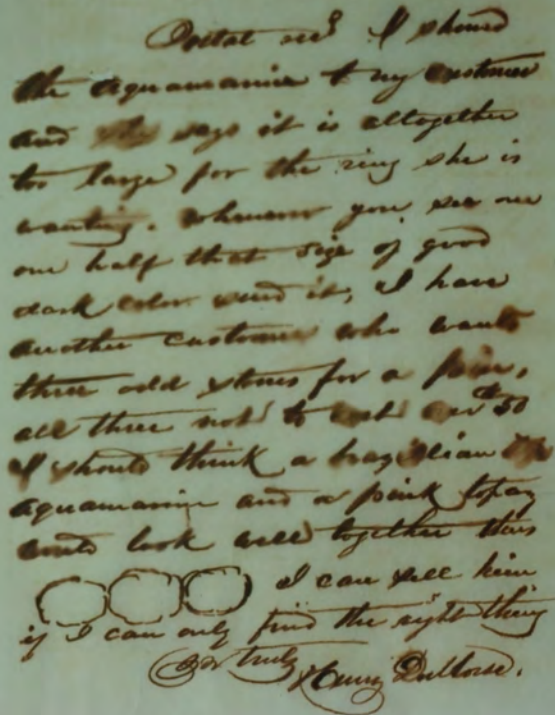 Postal recd I showed
the aquamarine to my customer
and she says it is altogether
too large for the ring she is
wanting. Whenever you see one
one half that size of good
dark color send it, I have
another customer who wants
three odd stones for a pin,
all three not to cost over $50
I should think a brazilian
aquamarine and a pink topaz
would look well together thus
I can sell him
if I can only find the right thing
yr truly Henry